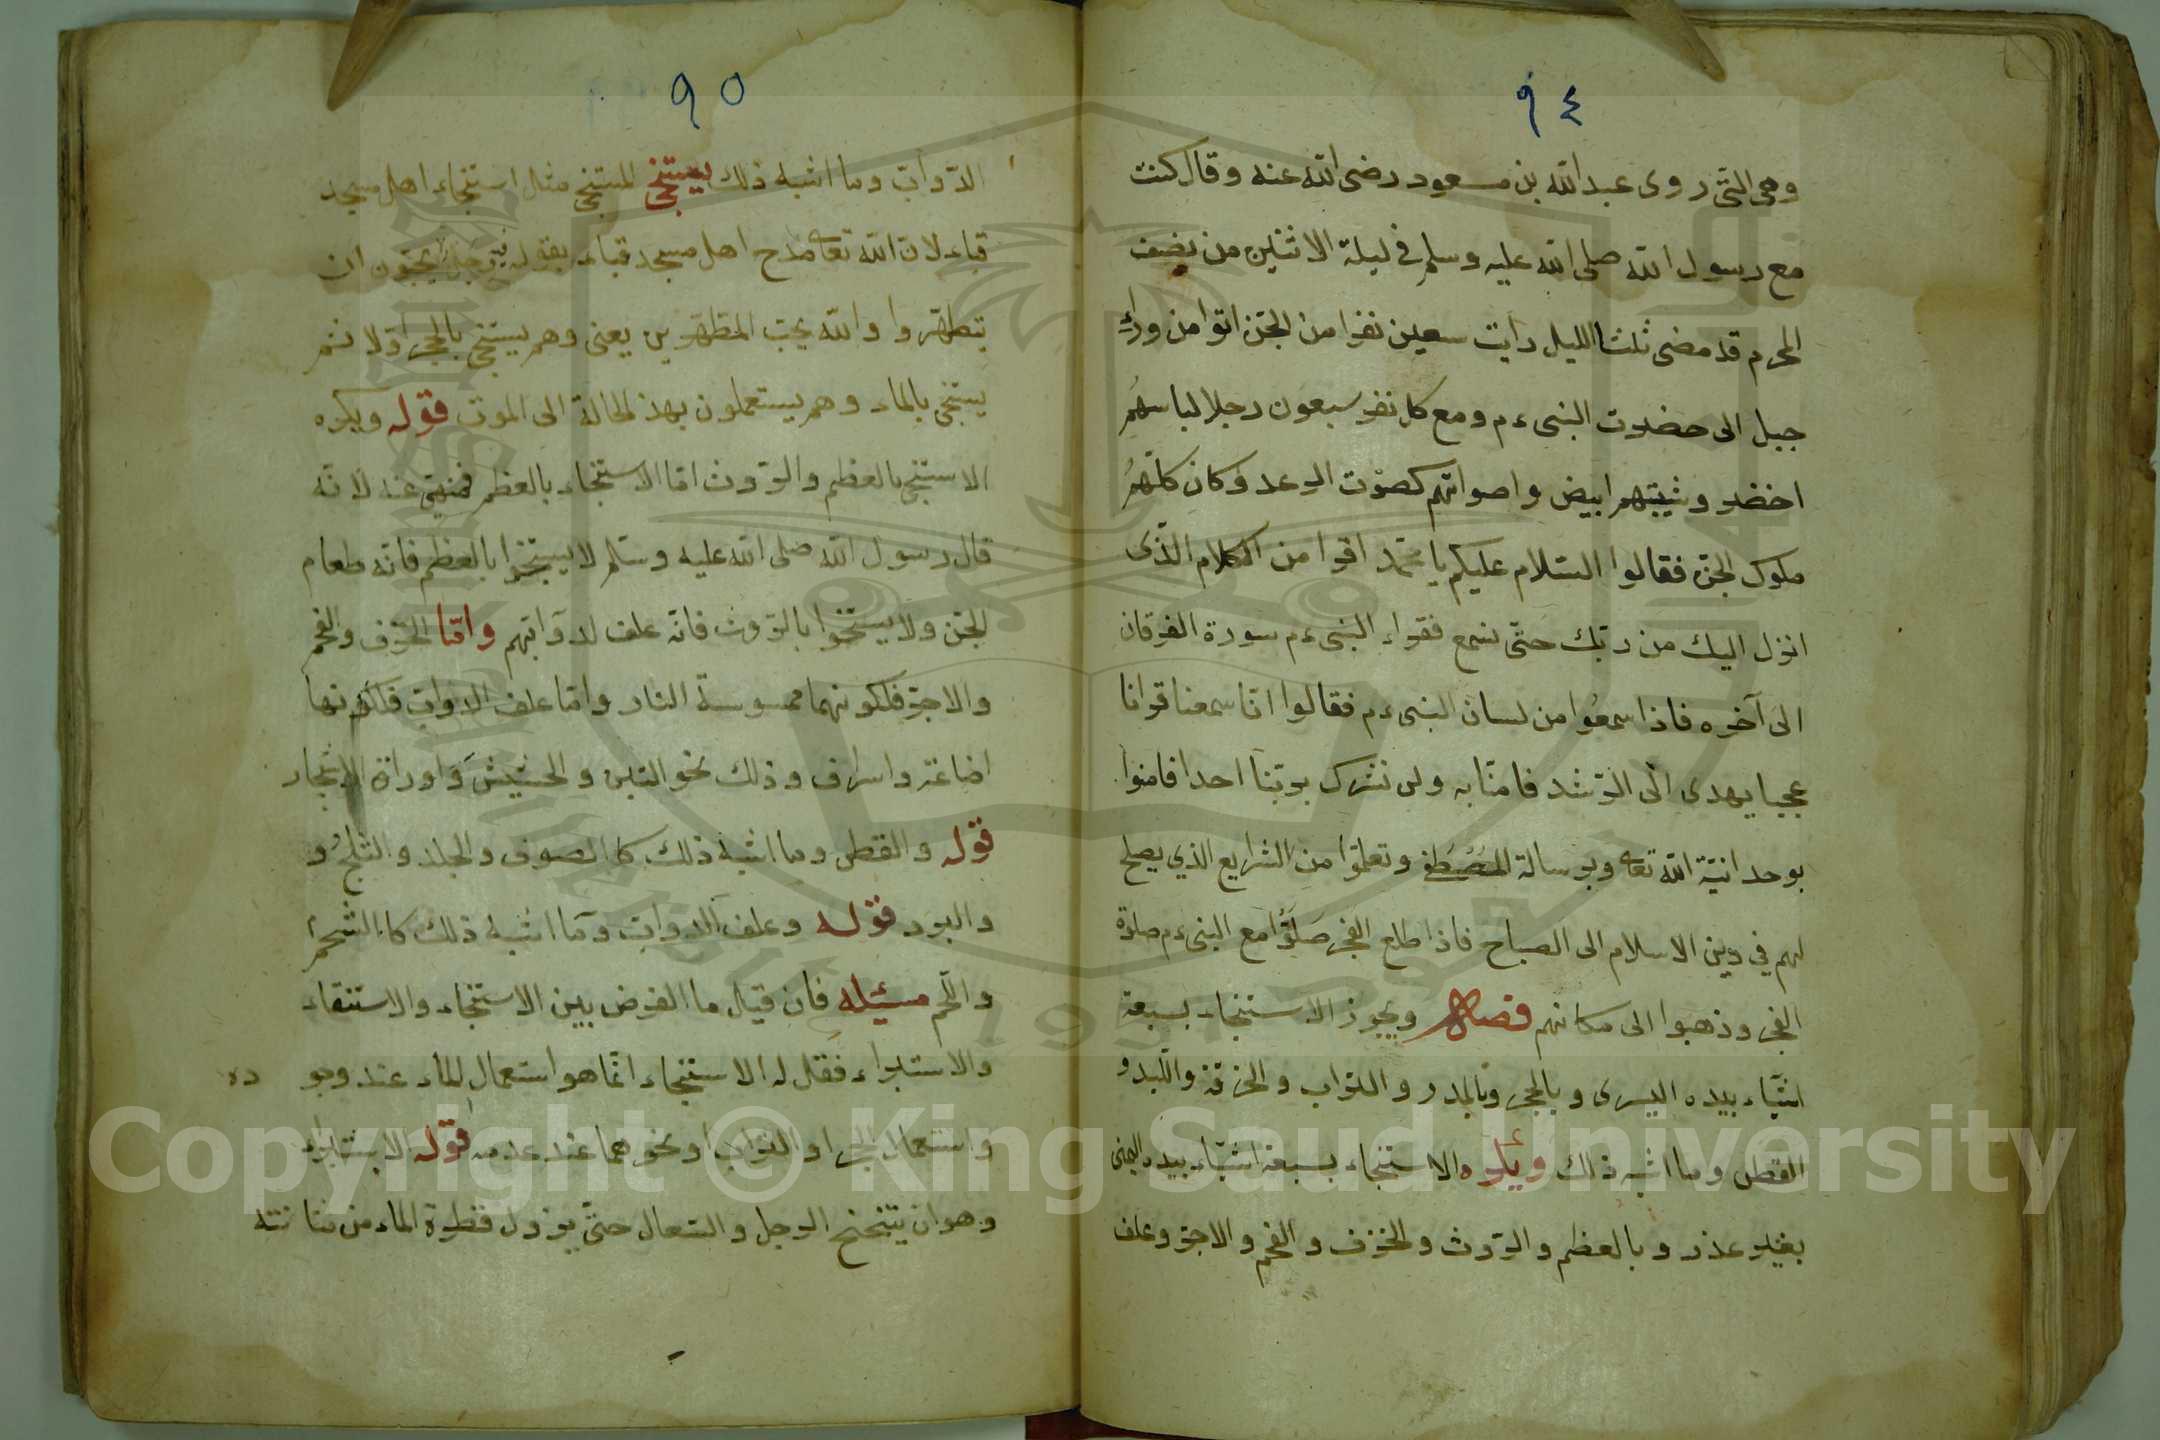 ٩٤
وهى التى روى عبد الله بن مسعود رضى الله عنه وقال كنت
مع رسول الله صلى الله عليه وسلم فى ليلة الاثنين من نصف
المحرم قد مضى ثلثا الليل رأيت سعين نفرا من الجن اتوا من وراء
جبل الى حضرت النبى ءم ومع كل نفر سبعون رجلا لباسهم
اخضر وشيبتهم ابيض واصواتهم كصوت الرعد وكان كلهم
ملوك الجن فقالوا السلام عليكم يا محمد اقرا من الكلام الذى
انزل اليك من ربك حتى نسمع فقراء النبى ءم سورة الفرقان
الى آخره فاذا سمعوا من لسان النبى ءم فقالوا انا سمعنا قرانا
عجبا يهدى الى الرشد فامنا به ولن نشرك بربنا احدا فامنوا
بوحدانية الله تعا وبرسالة المصطفى وتعلموا من الشرايع الذي يصلح
لهم في دين الاسلام الى الصباح فاذا طلع الفجر صلوا مع النبى ءم صلوة
الفجر وذهبوا الى مكانهم فصل ويجوز الاستنجاء بسبعة
اشياء بيده اليسرى وبالحجر وبالمدر والتراب والخرقة واللبد و
القطن وما اشبه ذلك ويكره الاستنجاء بسبعة اشياء بيده اليمنى
بغير عذر وبالعظم والروث والخزف والفحم والاجر وعلف
٩٥
الدواب وما اشبه ذلك يستنجى المستنجى مثل استنجاء اهل مسجد
قباء لان الله تعا مدح اهل مسجد قباء بقوله فيه رجال يحبون ان
يتطهروا والله يحب المطهرين يعنى وهم يستنجى بالحجر اولا ثمر
يستنجى بالماء وهم يستعملون بهذ لحالة الى الموت قوله ويكره
الاستنجى بالعظم والروث اما الاستنجاء بالعظم فمنهى عنه لانه
قال رسول الله صلى الله عليه وسلم لا يستنجوا بالعظم فانه طعام
الجن ولا يستنجوا بالروث فانه علف لدوابهم واما الخزف والفحم
والاجر فلكونهما ممسوسة النار واما علف الدواب فلكونها
اضاعة واسراف وذلك نحو التبن والحشيش واوراق الاشجار
قوله والقطن وما اشبه ذلك كالصوف والجلد والثلج و
والبرد قوله وعلف الدواب وما اشبه ذلك كالشحم
واللحم مسئله فان قيل ما الفرض بين الاستنجاء والاستنقاء
والاستبراء فقل له الاستنجاء انما هو استعمال الماء عند وجو ده
واستعمال الحجر او التراب او نحوهما عند عدمه قوله الاستبراء
وهو ان يتنحنح الرجل والسعال حتى يزول قطرة الماء من مثانته
Copyright © King Saud University
1957